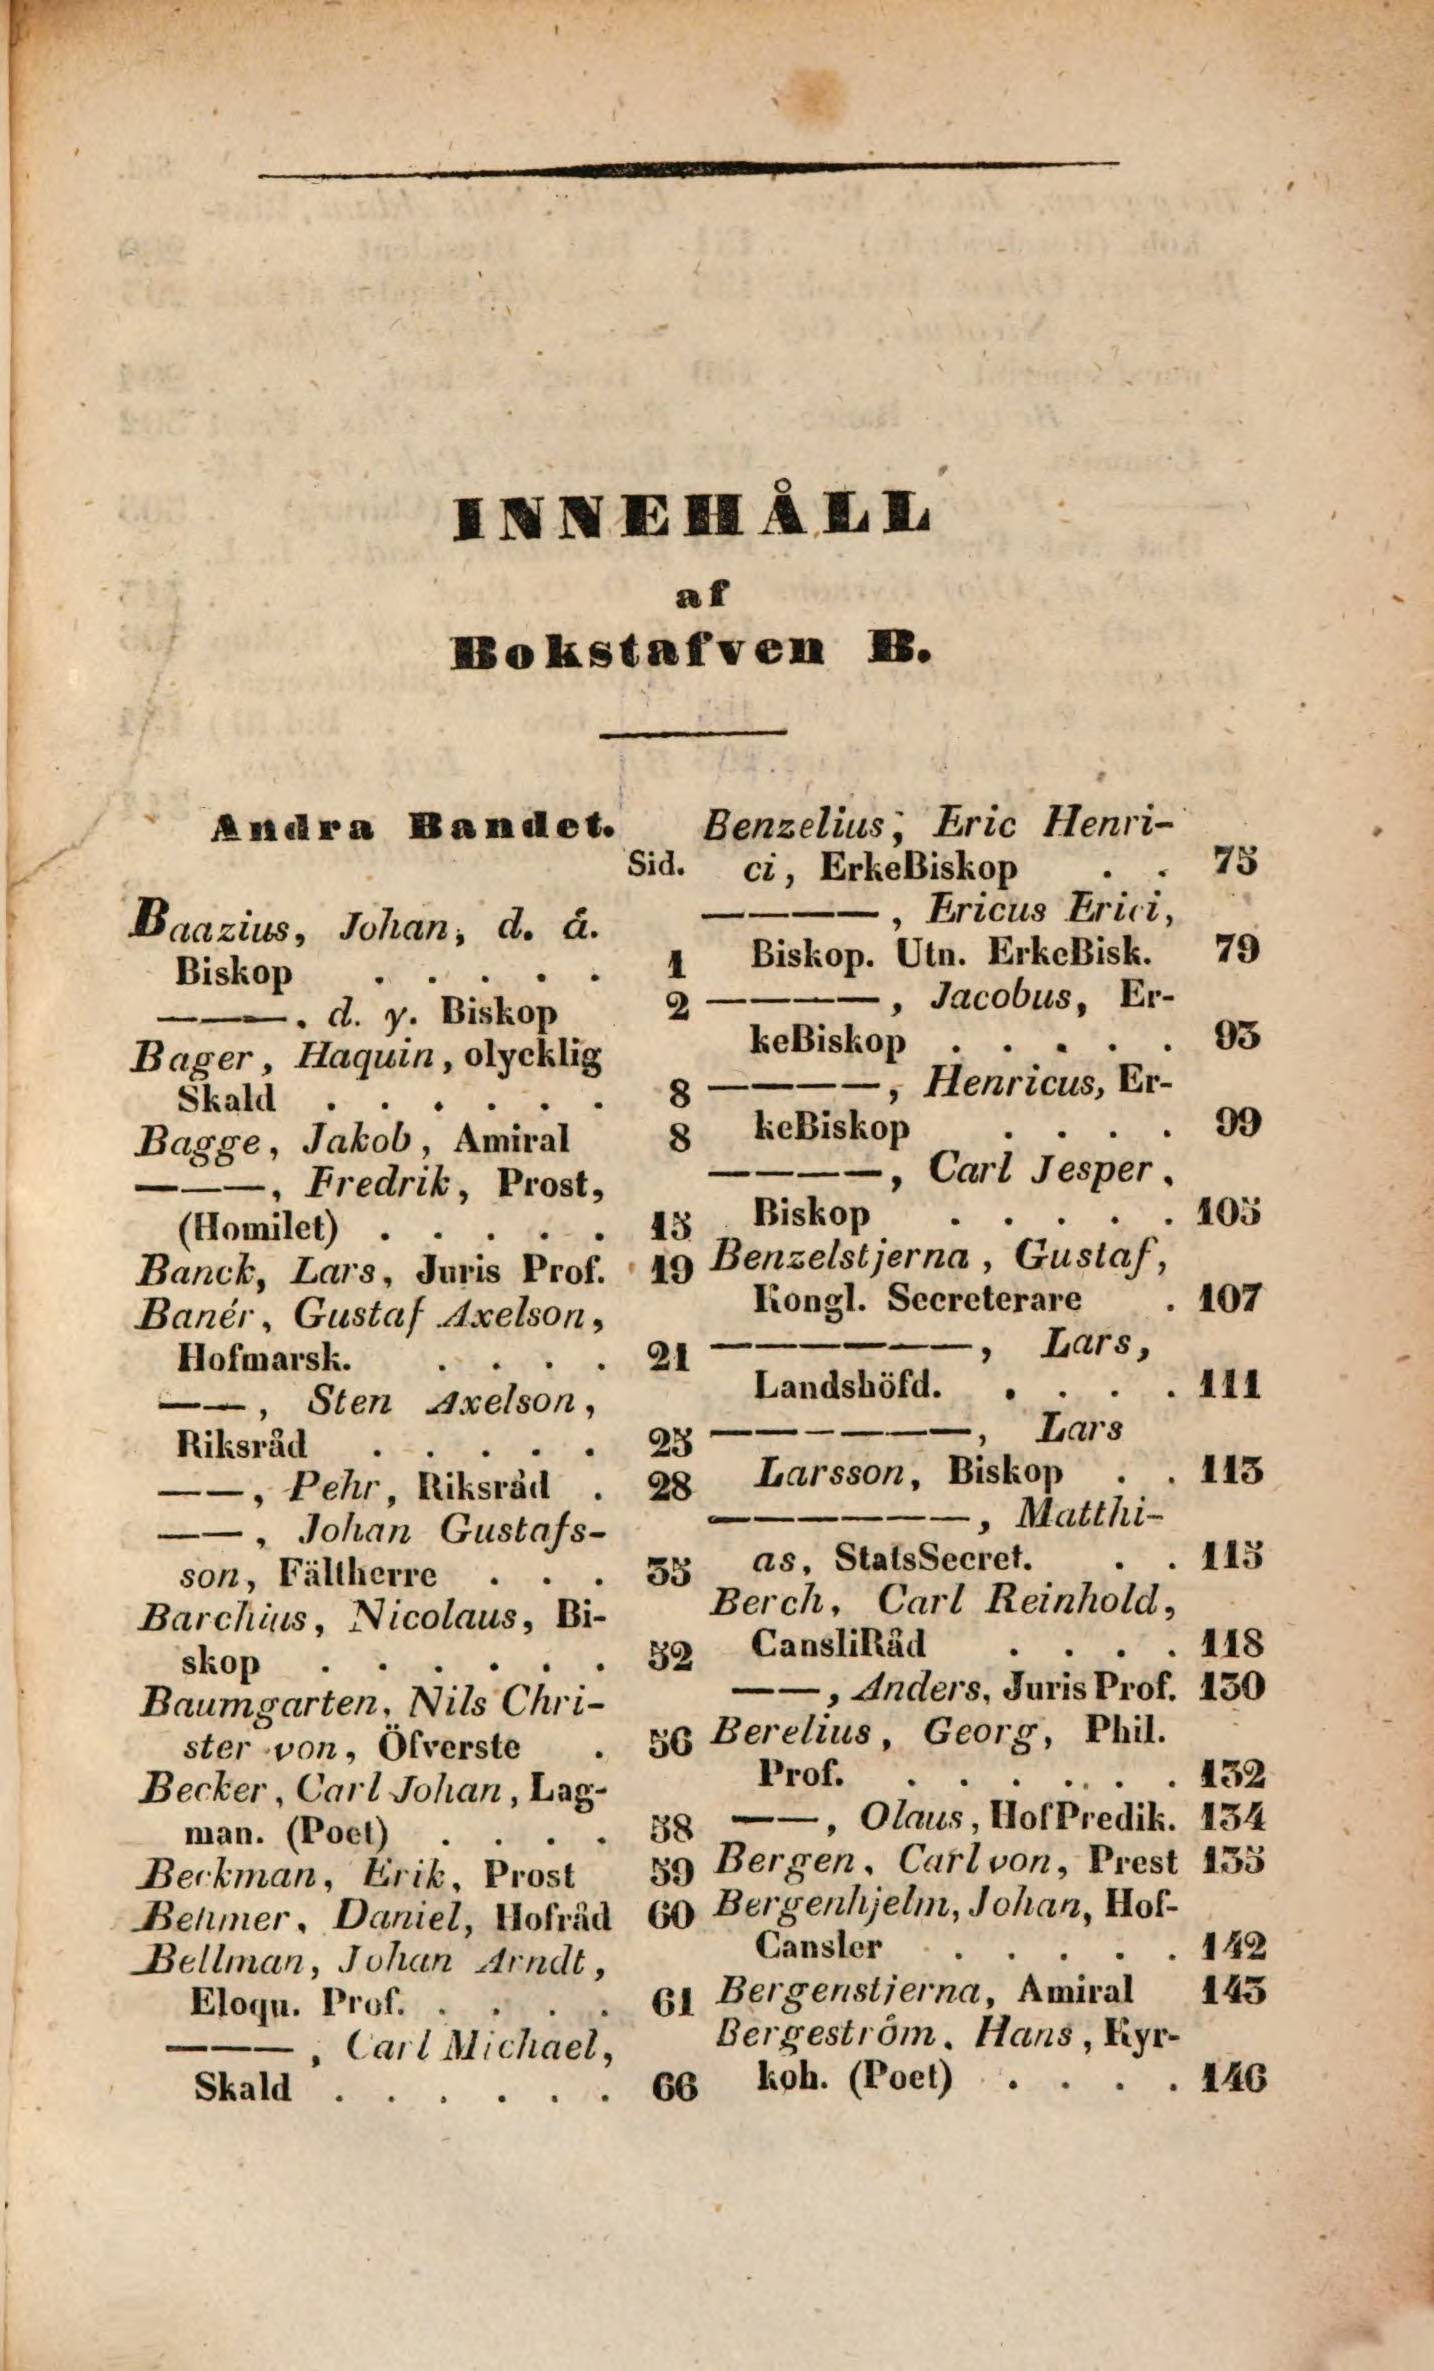 INNEHÅLL
af
Bokstafven B.
Andra Bandet.
Sid.
Baazius, Johan, d. ä.
Biskop . . . . . 1
———, d. y. Biskop 2
Bager, Haquin, olycklig
Skald . . . . . . 8
Bagge, Jakob, Amiral 8
———, Fredrik, Prost,
(Homilet) . . . . . 15
Banck, Lars, Juris Prof. 19
Banér, Gustaf Axelson,
Hofmarsk. . . . . 21
——, Sten Axelson,
Riksråd . . . . . 25
——, Pehr, Riksråd . 28
——, Johan Gustafs-
son, Fältherre . . . 35
Barchius, Nicolaus, Bi-
skop . . . . . . 52
Baumgarten, Nils Chri-
ster von, Öfverste . 56
Becker, Carl Johan, Lag-
man. (Poet) . . . . 58
Beckman, Erik, Prost 59
Behmer, Daniel, Hofråd 60
Bellman, Johan Arndt,
Eloqu. Prof. . . . . 61
———, Carl Michael,
Skald . . . . . . 66
Benzelius, Eric Henri-
ci, ErkeBiskop . . 75
————, Ericus Erici,
Biskop. Utn. ErkeBisk. 79
————, Jacobus, Er-
keBiskop . . . . . 93
————, Henricus, Er-
keBiskop . . . . 99
————, Carl Jesper,
Biskop . . . . . 105
Benzelstjerna, Gustaf,
Kongl. Secreterare . 107
——————, Lars,
Landshöfd. . . . . 111
——————, Lars
Larsson, Biskop . . 113
——————, Matthi-
as, StatsSecret. . . 115
Berch, Carl Reinhold,
CansliRåd . . . . 118
——, Anders, Juris Prof. 130
Berelius, Georg, Phil.
Prof. . . . . . . 132
——, Olaus, HofPredik. 134
Bergen, Carl von, Prest 135
Bergenhjelm, Johan, Hof-
Cansler . . . . . 142
Bergenstjerna, Amiral 143
Bergeström, Hans, Kyr-
koh. (Poet) . . . . 146